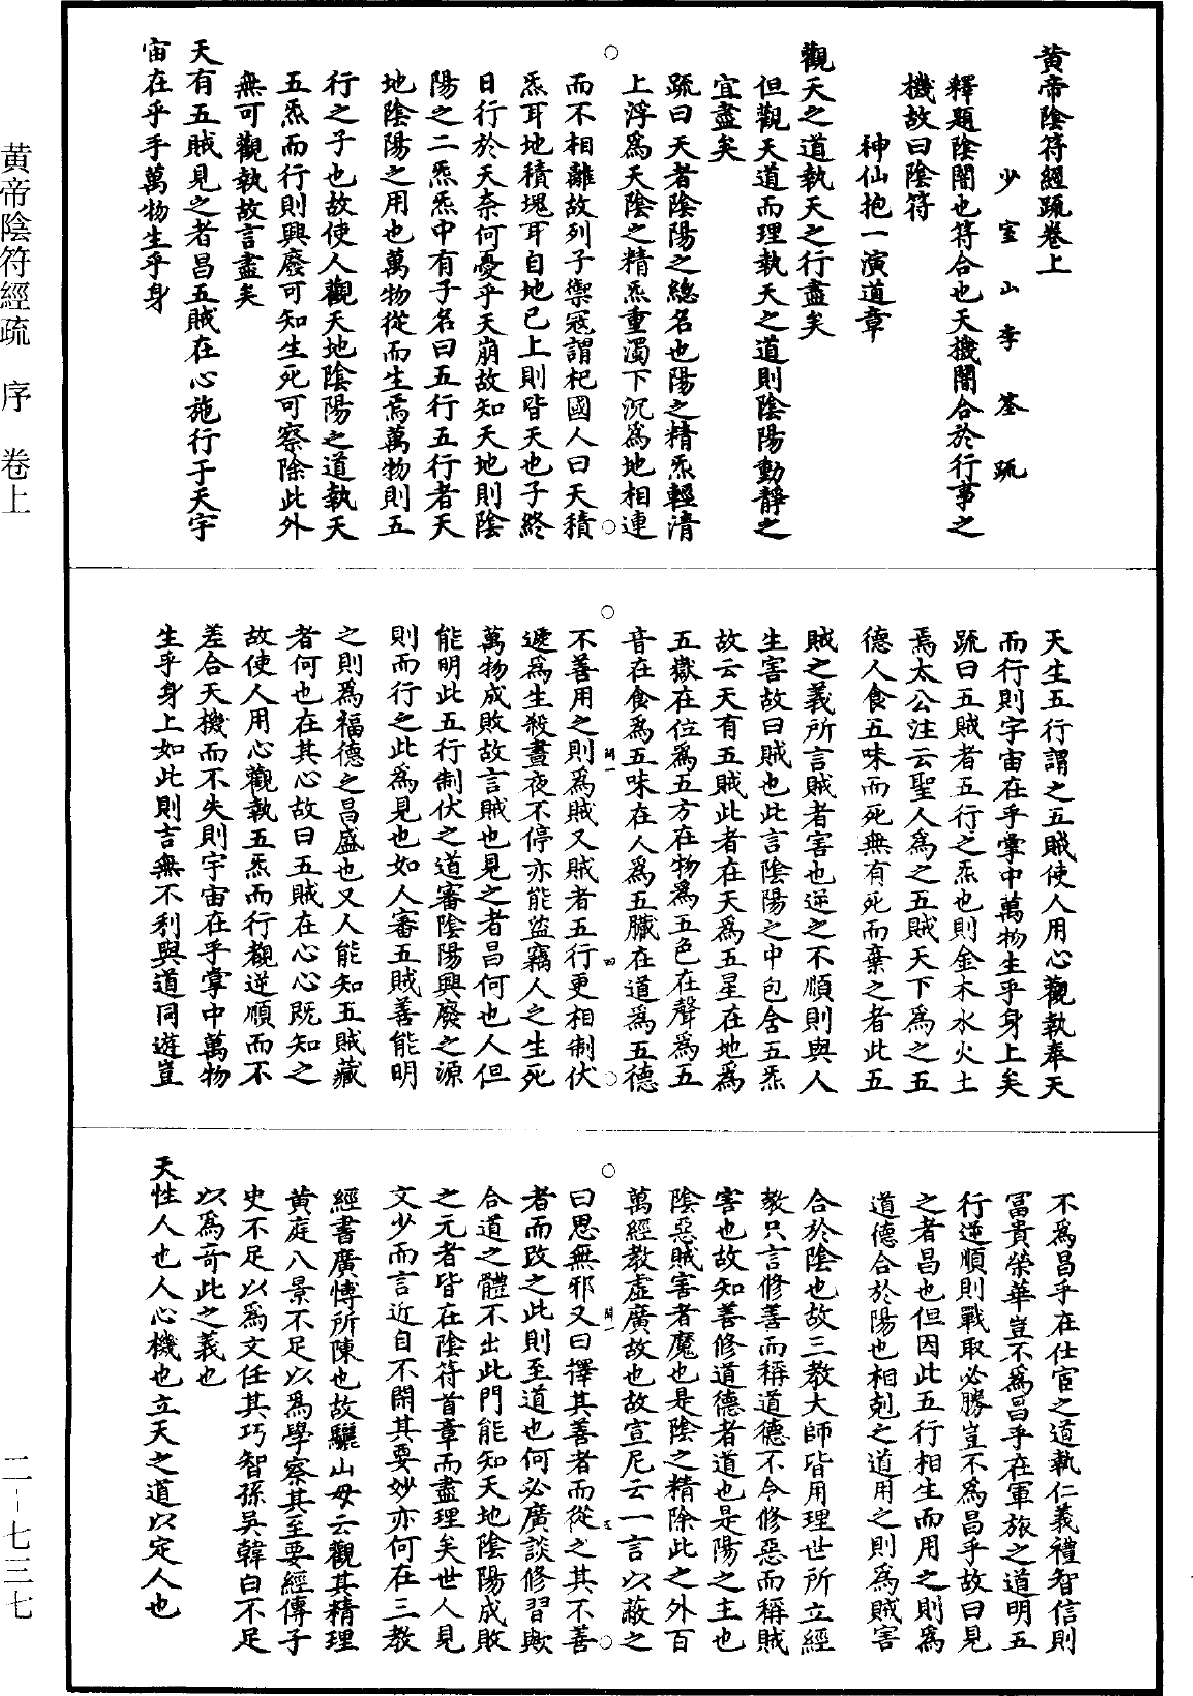 黃帝陰符經疏卷上
少室山李筌疏
釋題陰闇也符合也天機闇合於行事之
機故曰陰符
神仙抱一演道章
觀天之道執天之行盡矣
但觀天道而理執天之道則陰陽動靜之
宜盡矣
疏曰天者陰陽之總名也陽之精炁輕清
上浮為天陰之精炁重濁下沉為地相連
而不相離故列子禦寇謂杞國人曰天積
炁耳地積塊耳自地已上則皆天也子終
日行於天奈何憂乎天崩故知天地則陰
陽之二炁炁中有子名曰五行五行者天
地陰陽之用也萬物從而生焉萬物則五
行之子也故使人觀天地陰陽之道執天
五炁而行則興廢可知生死可察除此外
無可觀執故言盡矣
天有五賊見之者昌五賊在心施行于天宇
宙在乎手萬物生乎身
天生五行謂之五賊使人用心觀執奉天
而行則宇宙在乎掌中萬物生乎身上矣
疏曰五賊者五行之炁也則金木水火土
焉太公注云聖人為之五賊天下為之五
德人食五味而死無有死而棄之者此五
賊之義所言賊者害也逆之不順則與人
生害故曰賊也此言陰陽之中包含五炁
故云天有五賊此者在天為五星在地為
五嶽在位為五方在物為五色在聲為五
音在食為五味在人為五臟在道為五德
不善用之則為賊又賊者五行更相制伏
遞為生殺晝夜不停亦能盜竊人之生死
萬物成敗故言賊也見之者昌何也人但
能明此五行制伏之道審陰陽興廢之源
則而行之此為見也如人審五賊善能明
之則為福德之昌盛也又人能知五賊藏
者何也在其心故曰五賊在心心既知之
故使人用心觀執五炁而行觀逆順而不
差合天機而不失則宇宙在乎掌中萬物
生乎身上如此則吉無不利與道同遊豈
不為昌乎在仕宦之道執仁義禮智信則
富貴榮華豈不為昌乎在軍旅之道明五
行逆順則戰取必勝豈不為昌乎故曰見
之者昌也但因此五行相生而用之則為
道德合於陽也相剋之道用之則為賊害
合於陰也故三教大師皆用理世所立經
教只言修善而稱道德不令修惡而稱賊
害也故知善修道德者道也是陽之主也
陰惡賊害者魔也是陰之精除此之外百
萬經教虛廣故也故宣尼云一言以蔽之
曰思無邪又曰擇其善者而從之其不善
者而改之此則至道也何必廣談修習歟
合道之體不出此門能知天地陰陽成敗
之元者皆在陰符首章而盡理矣世人見
文少而言近自不閑其要妙亦何在三教
經書廣博所陳也故驪山母云觀其精理
黃庭八景不足以為學察其至要經傳子
史不足以為文任其巧智孫吳韓白不足
以為奇此之義也
天性人也人心機也立天之道以定人也
黃帝陰符經疏　序　卷上
二-七三七